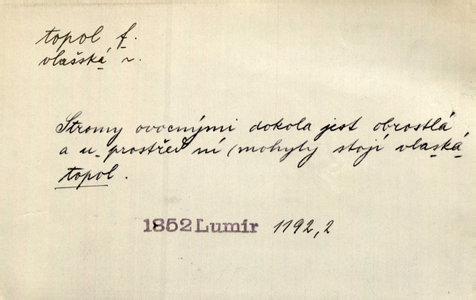 topol f.
vlašská, r.
Stromy ovocnými dokola jest obrostlá,
a u prostřed ní (mohyly stojí vlaská
topol.
1852 Lumír 1192,2